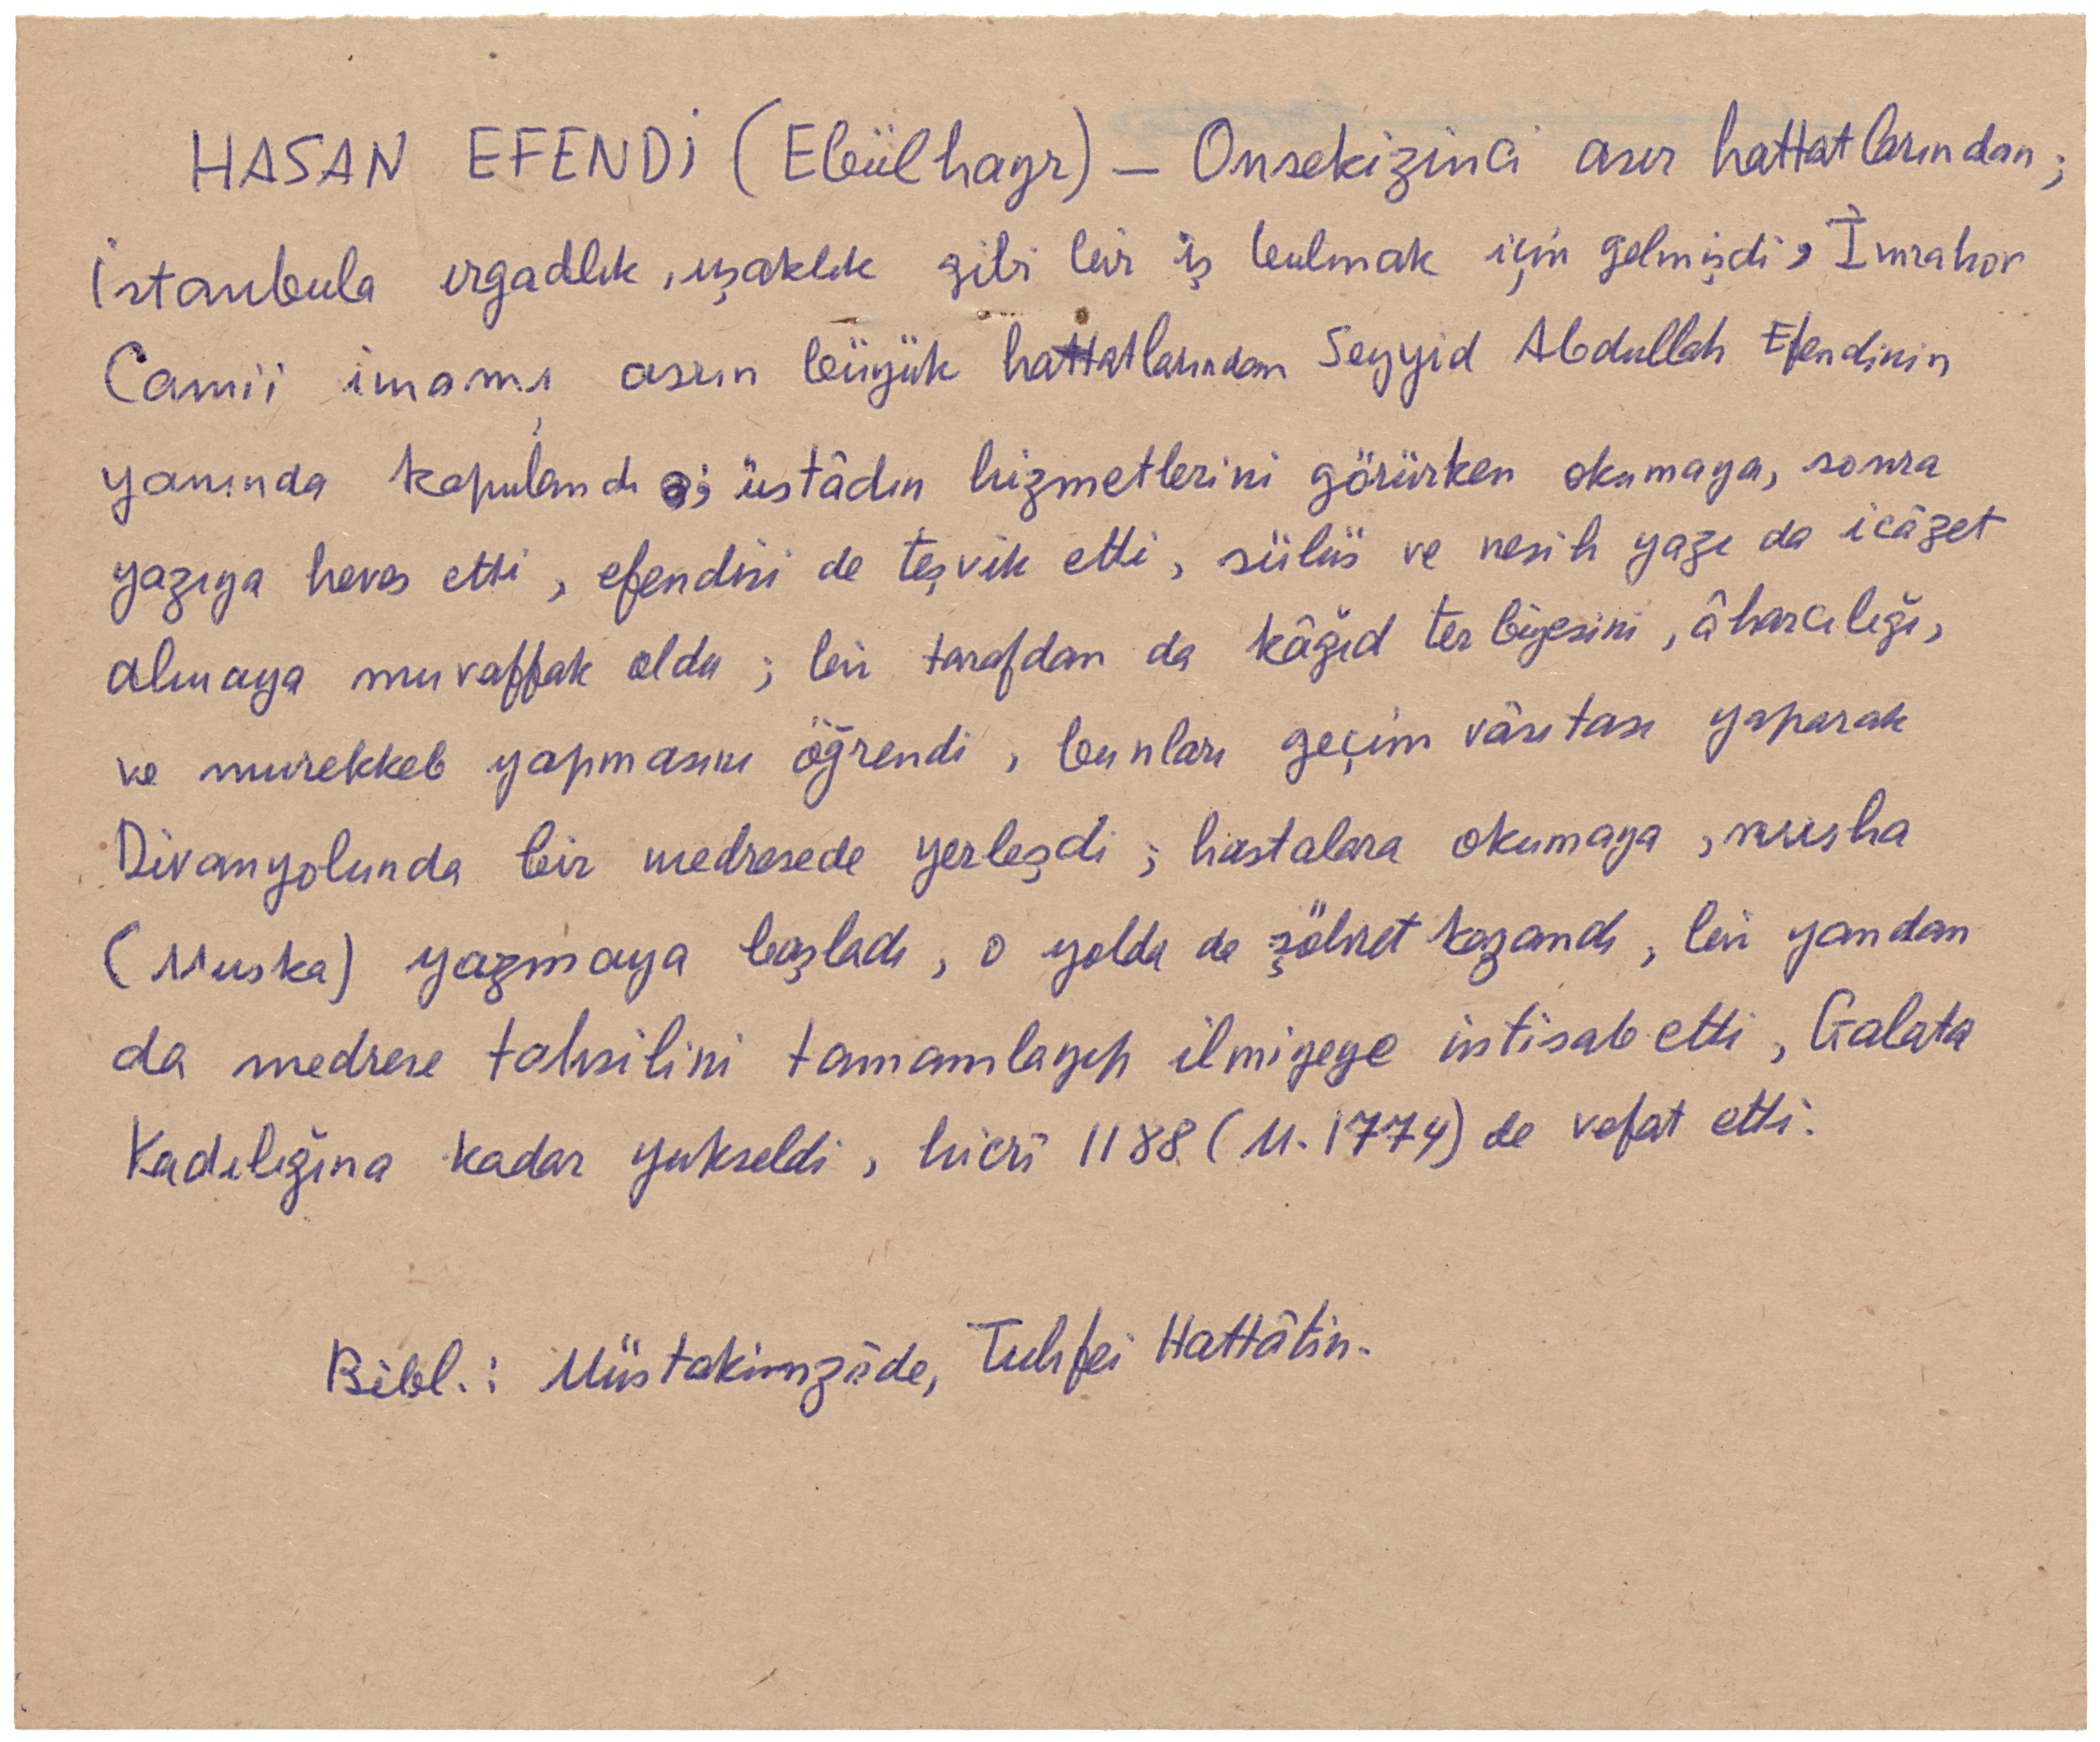 HASAN EFENDİ (Ebülhayr) — Onsekizinci asır hattatlarından;
İstanbula ırgadlık, uşaklık gibi bir iş bulmak için gelmişdi, İmrahor
Camii imamı, asrın büyük hattatlarından Seyyid Abdullah Efendinin
yanında kapulandı; üstâdın hizmetlerini görürken okumaya, sonra
yazıya heves etti, efendisi de teşvik etti, sülüs ve nesih yazı da icâzet
almaya muvaffak oldu; bir tarafdan da kâğıd terbiyesini, âharcılığı,
ve murekkeb yapmasını öğrendi, bunları geçim vâsıtası yaparak
Divanyolunda bir medresede yerleşdi; hastalara okumaya, nusha
(Muska) yazmaya başladı, o yolda da şöhret kazandı, bir yandan
da medrese tahsilini tamamlayıp ilmiyeye intisab etti, Galata
Kadılığına kadar yukseldi, hicrî 1188 (M. 1774) de vefat etti.
Bibl.: Müstakimzâde, Tuhfei Hattâtin.